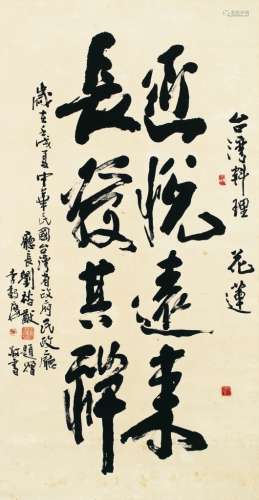 台灣料理 花蓮
近悅遠來
長發其祥
歲在壬戌夏中華民國台灣省政府民政廳
廳長劉裕猷題贈
李敬書